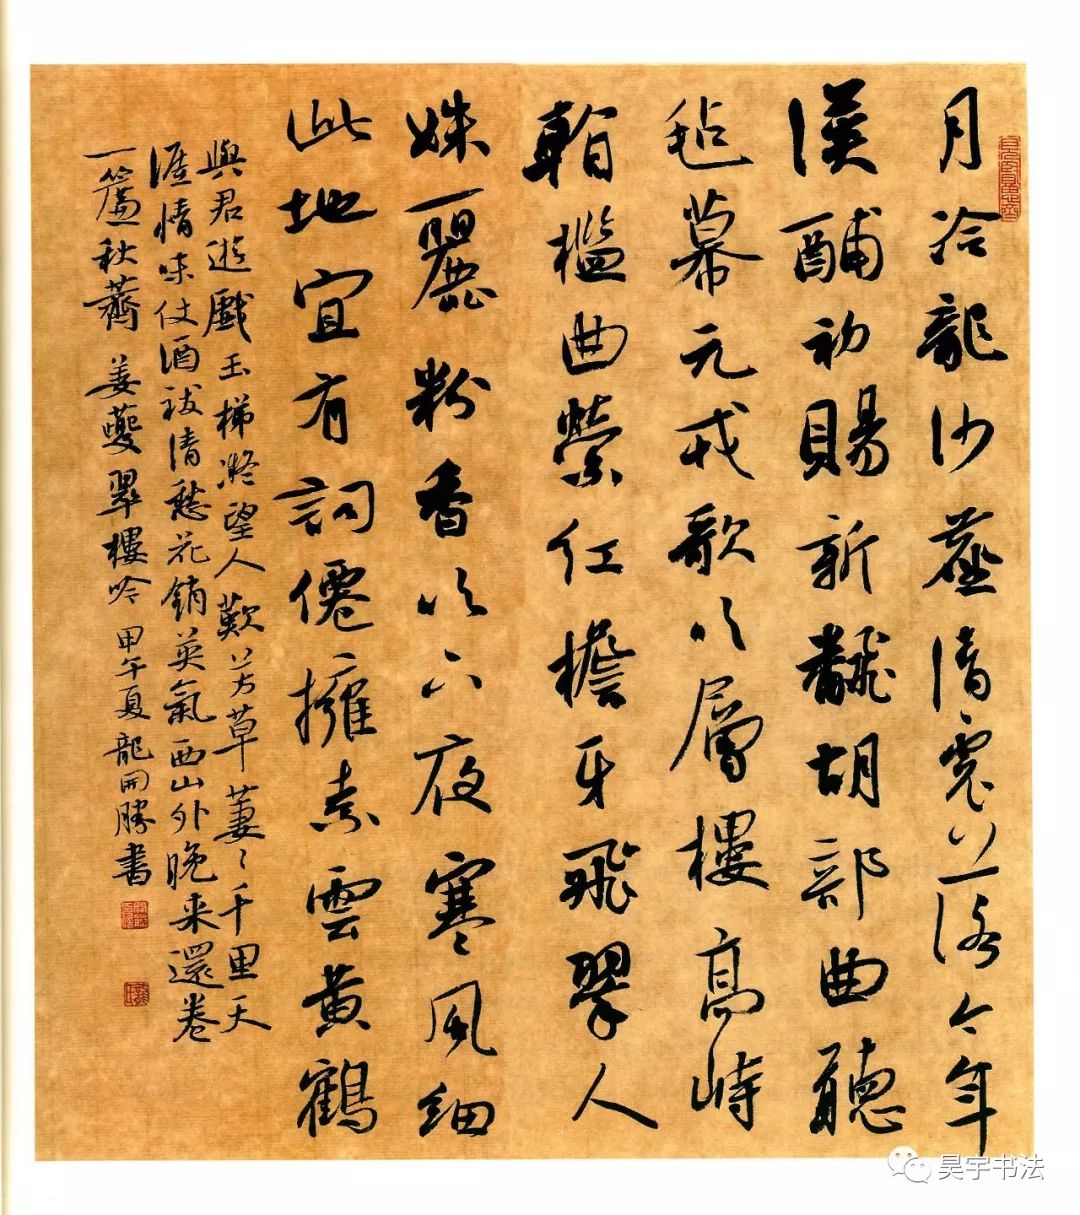 月冷龍沙塵清虎落今年
漢酺初賜新翻胡部曲聽
毡幕元戎歌吹層樓高峙
看檻曲縈紅檐牙飛翠人
姝麗粉香吹下夜寒風細
此地宜有詞僊擁素雲黃鶴
與君遊戲玉梯凝望久歎芳草萋〻千里天
涯情味仗酒祓清愁花銷英氣西山外晚來還卷
一簾秋霽 姜夔翠樓吟 甲午夏龍開勝書
昊宇书法